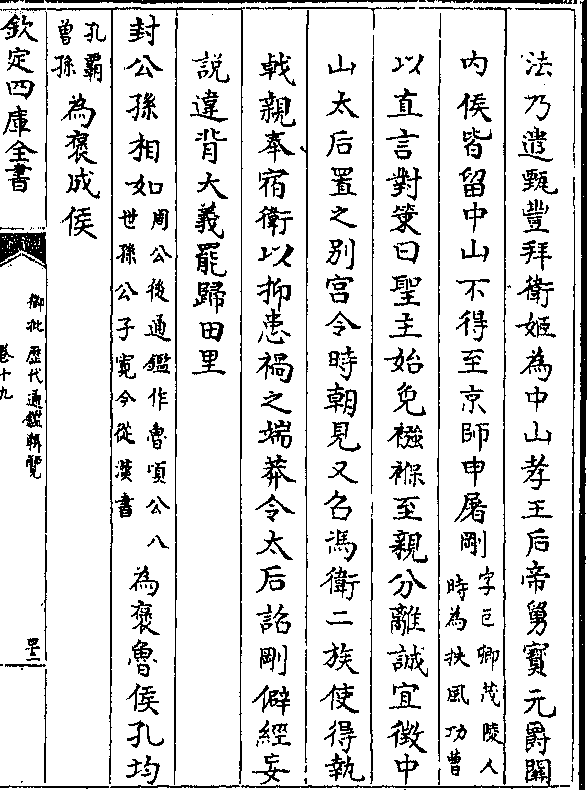 法乃遣甄豐拜衛姬為中山孝王后帝舅寶元爵關
内侯皆留中山不得至京師申屠剛字巨卿茂陵人時為扶風功曹
以直言對策曰聖主始免襁褓至親分離誠宜徵中
山太后置之别宫令時朝見又召馮衛二族使得執
戟親奉宿衛以抑患禍之端莽令太后詔剛僻經妄
説違背大義罷歸田里
封公孫相如周公後通鑑作魯頃公八世孫公子寛今從漢書為褒魯侯孔均
孔霸曾孫為褒成侯
欽定四庫全書
御批歴代通鑑輯覽
卷十九